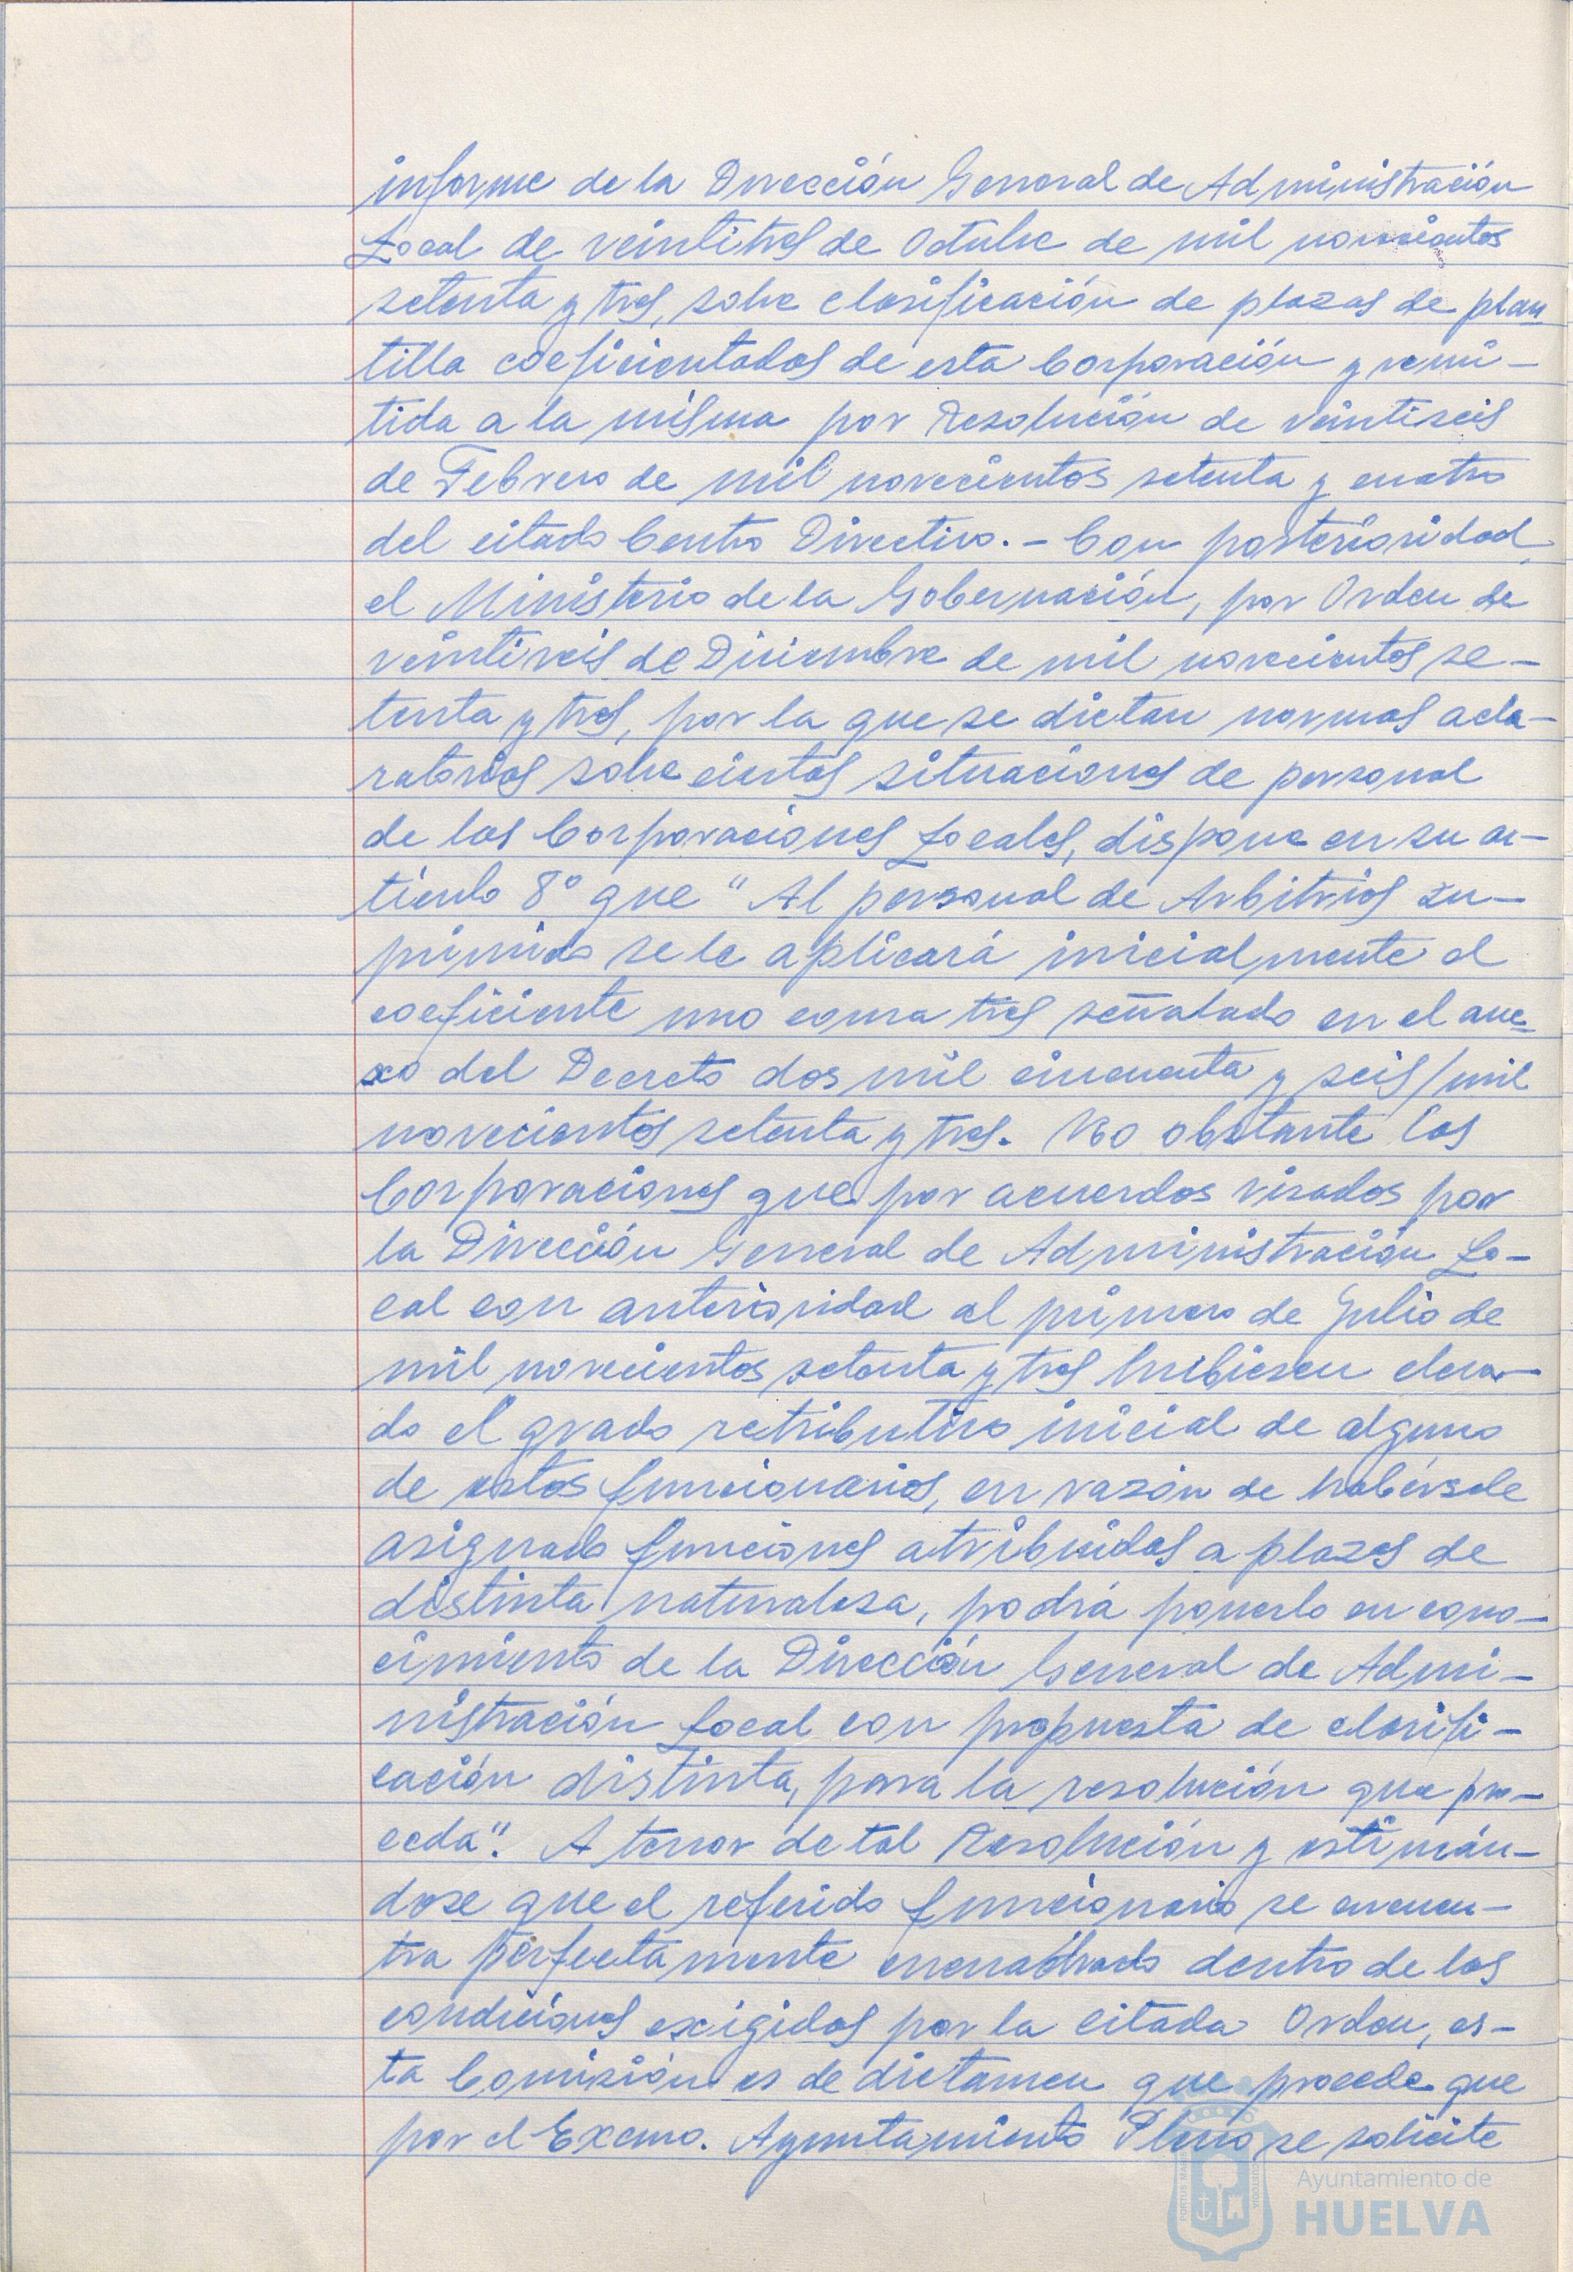 informe de la Dirección General de Administración
Local de veintitres de Octubre de mil novecientos
setenta y tres, sobre clasificación de plazas de plan
tilla coeficientadas de esta Corporación y remi-
tida a la misma por Resolución de veintiseis
de Febrero de mil novecientos setenta y cuatro
del citado Centro Directivo.- Con posterioridad,
el Ministerio de la Gobernación, por Orden de
veintiseis de Diciembre de mil novecientos se-
tenta y tres, por la que se dictan normas acla-
ratorias sobre ciertas situaciones de personal
de las Corporaciones Locales, dispone en su ar-
tículo 8º que "Al personal de Arbitrios su-
primido se le aplicará inicialmente el
coeficiente uno coma tres señalado en el ane-
xo del Decreto dos mil cincuenta y seis/mil
novecientos setenta y tres. No obstante las
Corporaciones que por acuerdos visados por
la Dirección General de Administración Lo-
cal con anterioridad al primero de Julio de
mil novecientos setenta y tres hubiesen eleva-
do el grado retributivo inicial de alguno
de estos funcionarios, en razón de habérsele
asignado funciones atribuidas a plazas de
distinta naturaleza, podrá ponerlo en cono-
cimiento de la Dirección General de Admi-
nistración Local con propuesta de clasifi-
cación distinta, para la resolución que pro-
ceda". A tenor de tal Resolución y estimán-
dose que el referido funcionario se encuen-
tra perfectamente encuadrado dentro de las
condiciones exigidas por la citada Orden, es-
ta Comisión es de dictamen que procede que
por el Excmo. Ayuntamiento Pleno se solicite
Ayuntamiento de
HUELVA